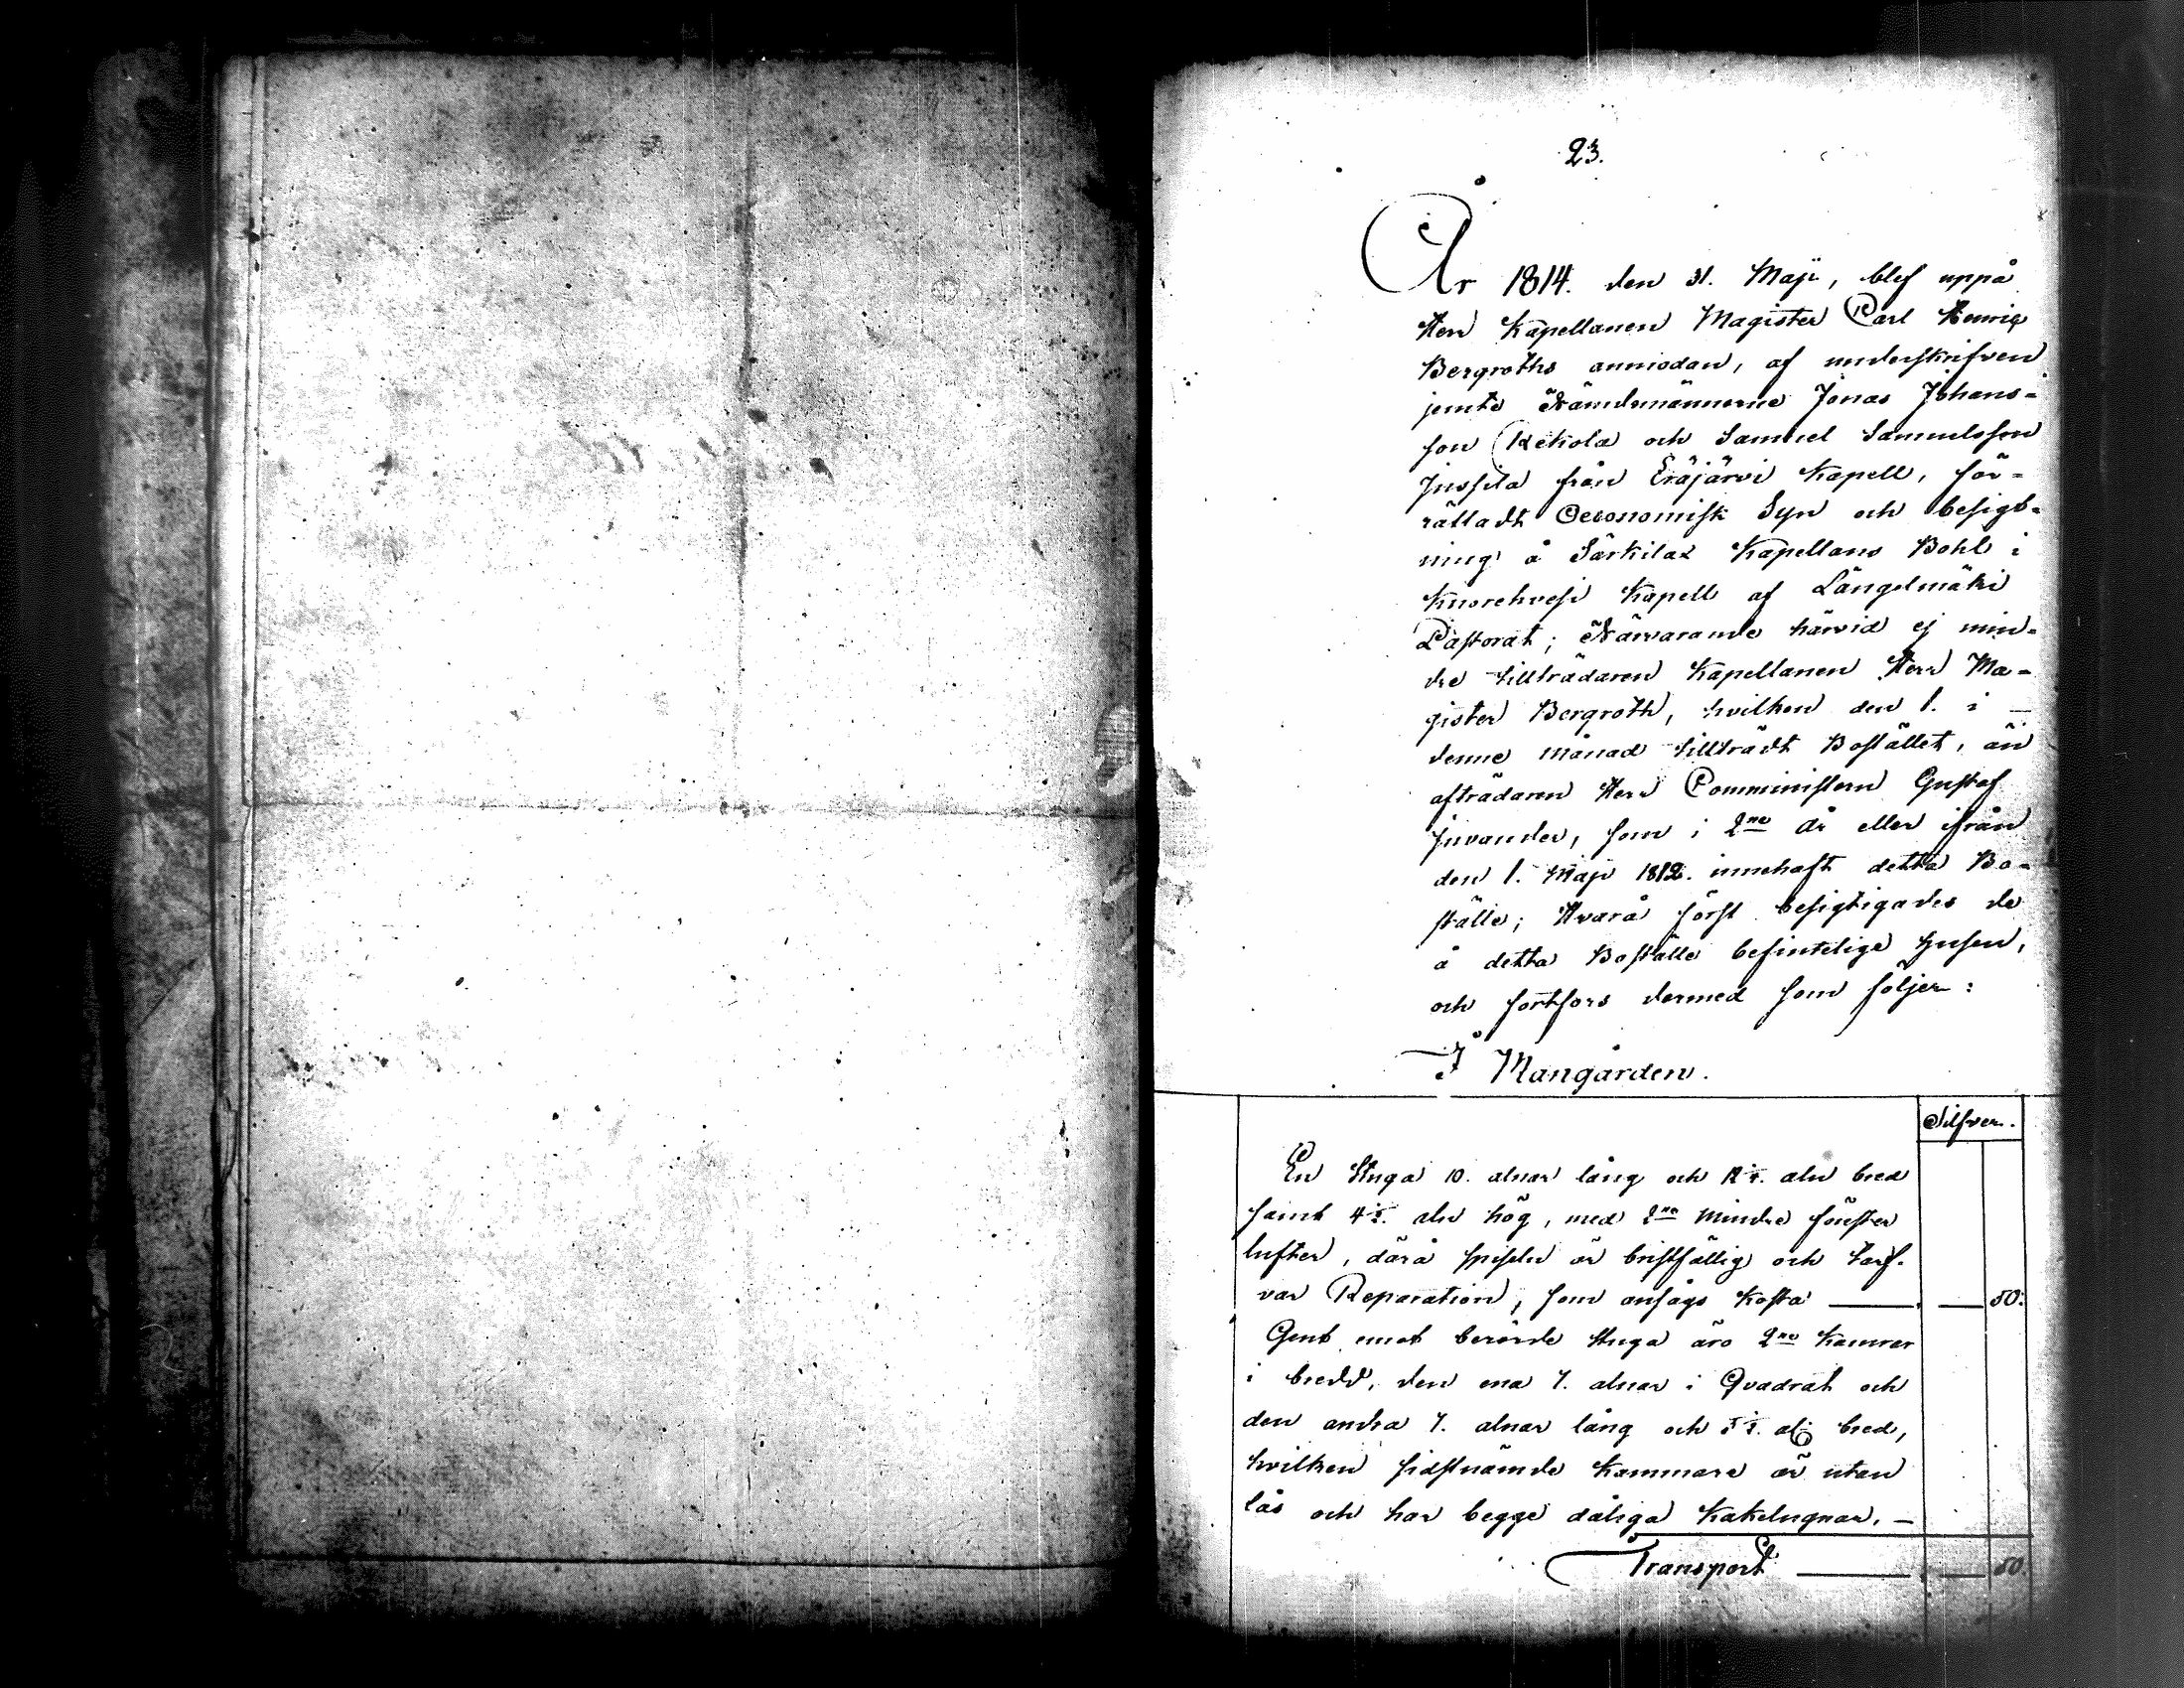 23.
År 1814. den 31. Maji, blef uppå
Herr Kapellanen Magister Carl Henric
Bergroths anmodan, af underskrifven
jemte Nämdemännerne Jonas Johans-
son Rekola och Samuel Samuelsson
Jussila från Eräjärvi Kapell, för-
rättadt Oeconomisk Syn och besigt-
ning å Särkilax Kapellans Bohl i
Kuorehvesi Kapell af Längelmäki
Pastorat; Närvarande härvid ej min-
dre tillträdaren Kapellanen Herr Ma-
gister Bergroth, hvilken den 1. i
denne månad tillträdt Bostället, än
afträdaren Herr Comministern Gustaf
Juvander, som i 2ne år eller ifrån
den 1. Maji 1812. innehaft detta Bo-
ställe; Hvarå först besigtigades de
å detta Boställe befintelige husen,
och fortfors dermed som följer:
I Mangården.
Silfver.
En Stuga 10. alnar lång och aln bred
samt 4 1/2. aln hög, med 2ne mindre fönster
lufter, därå spisen är bristfällig och tarf-
var Reparation, som ansågs kosta — — 50.
Gent emot berörde Stuga äro 2ne Kamrar
i bredd, den ena 7. alnar i Qvadrat och
den andra 7. alnar lång och al: bred,
hvilken sidstnämde Kammare är utan
lås och har begge dåliga Kakelugnar. —
Transport — — 50.